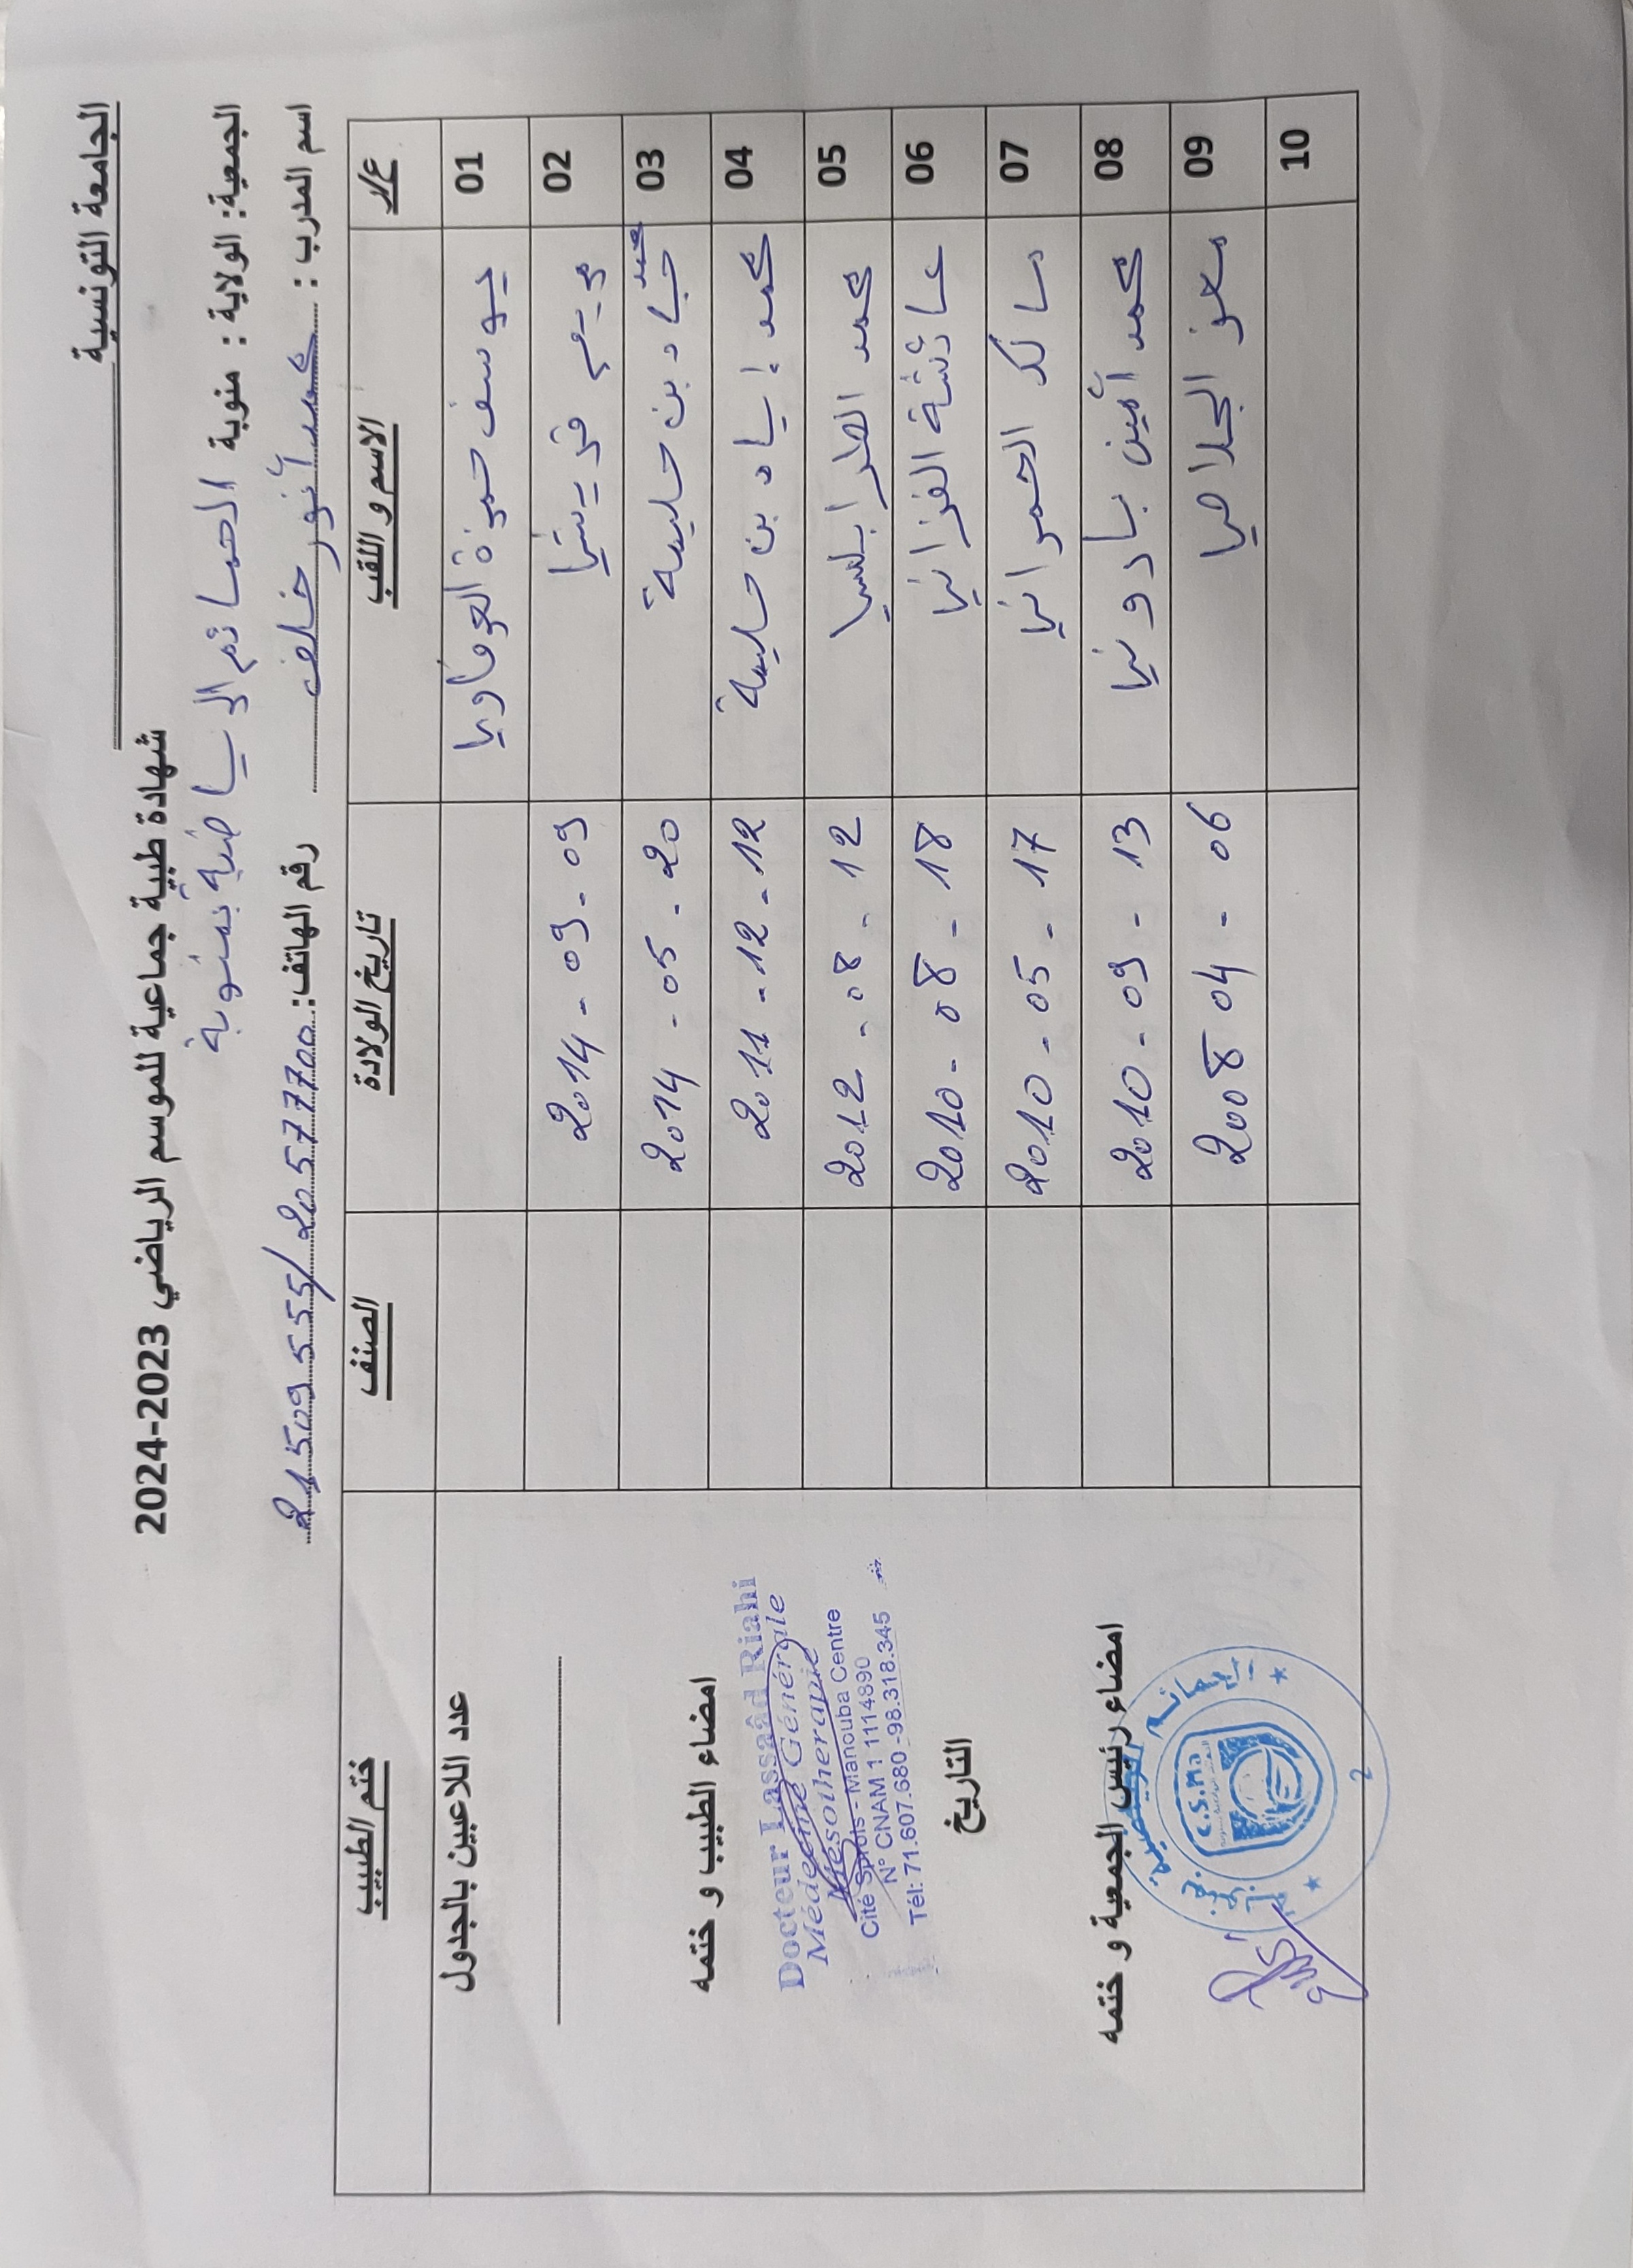 الجامعة التونسية
شهادة طبية جماعية للموسم الرياضي 2023-2024
الجمعية: الولاية : منوبة الحمائم الرياضية بمنوبة
اسم المدرب : محمد أنور خلف رقم الهاتف: 20577700 / 21509555
ع/ر الاسم و اللقب تاريخ الولادة الصنف ختم الطبيب
01 يوسف حمزة العرفاوي
02 مريم قريشي 2014 - 09 - 09
03 محمد جياد بن حليمة 2014 - 05 - 20
04 محمد إياد بن حليمة 2011 - 12 - 12
05 محمد الطرابلسي 2012 - 08 - 12
06 عائشة الغزاني 2010 - 08 - 18
07 مالك الحمراني 2010 - 05 - 17
08 محمد أمين بادوني 2010 - 09 - 13
09 معز الجلاصي 2008 04 - 06
10
عدد اللاعبين بالجدول
امضاء الطبيب و ختمه
Docteur Lassaâd Riahi
Médecine Générale
Mésotherapie
Cité Sprols - Manouba Centre
N° CNAM 1 1114890
Tél: 71.607.680 - 98.318.345
التاريخ
امضاء رئيس الجمعية و ختمه
C.S.Ma